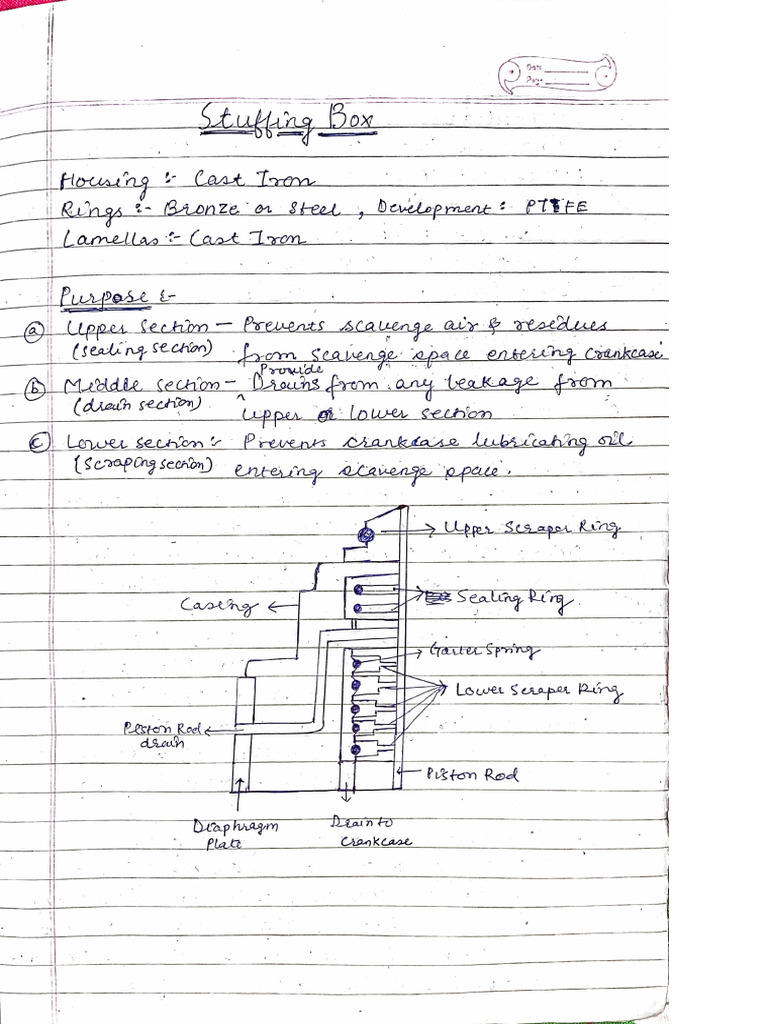 Date
Page
Stuffing Box
Housing :- Cast Iron
Rings :- Bronze or Steel , Development : PTFE
Lamellas :- Cast Iron
Purpose :-
(a) Upper section - Prevents scavenge air & residues
(sealing section) from scavenge space entering crankcase
(b) Middle section - Provide Drains from any leakage from
(drain section) upper or lower section
(c) Lower section :- Prevents crankcase lubricating oil
(scraping section) entering scavenge space.
Upper Scraper Ring
Casing
Sealing Ring
Garter Spring
Lower Scraper Ring
Piston Rod
drain
Piston Rod
Diaphragm
Plate
Drain to
crankcase